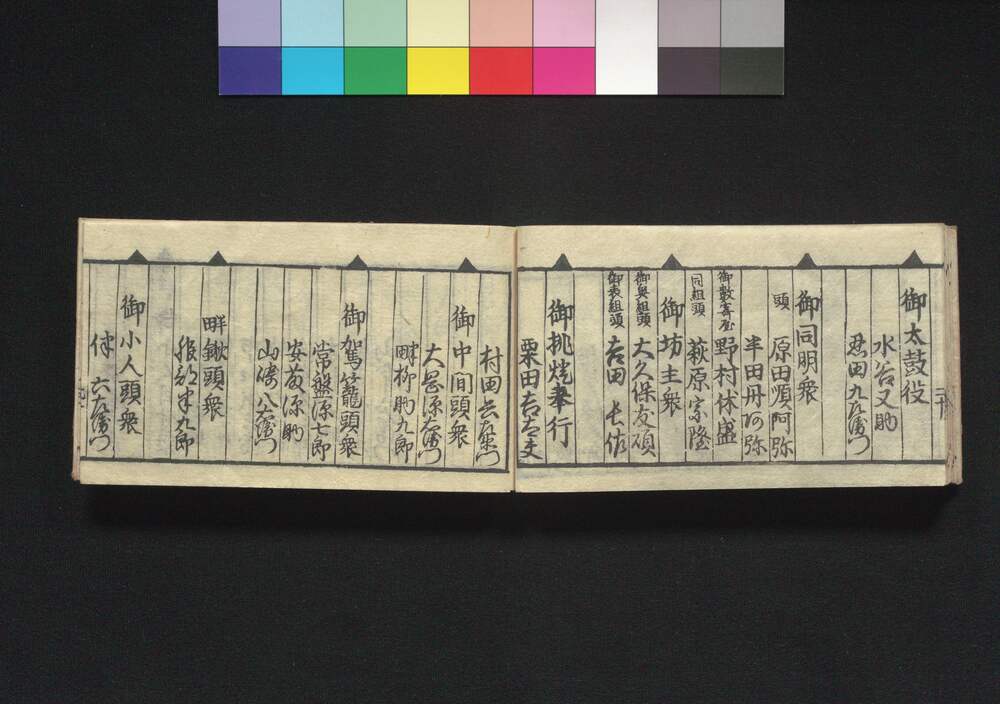 御太鼓役
水谷又助
忍田九左衛門
御同明衆
頭 原田順阿弥
半田丹阿弥
御数寄屋 野村休盛
同組頭 萩原宗隆
御坊主衆
御奥組頭 大久保友碩
御表組頭 吉田長佐
御挑燈奉行
栗田吉太夫
村田
御中間頭衆
大図源右衛門
畔柳助九郎
御駕籠頭衆
常盤源七郎
安藤源助
山崎八右衛門
畔鍬頭衆
服部半九郎
御小人頭衆
六左衛門